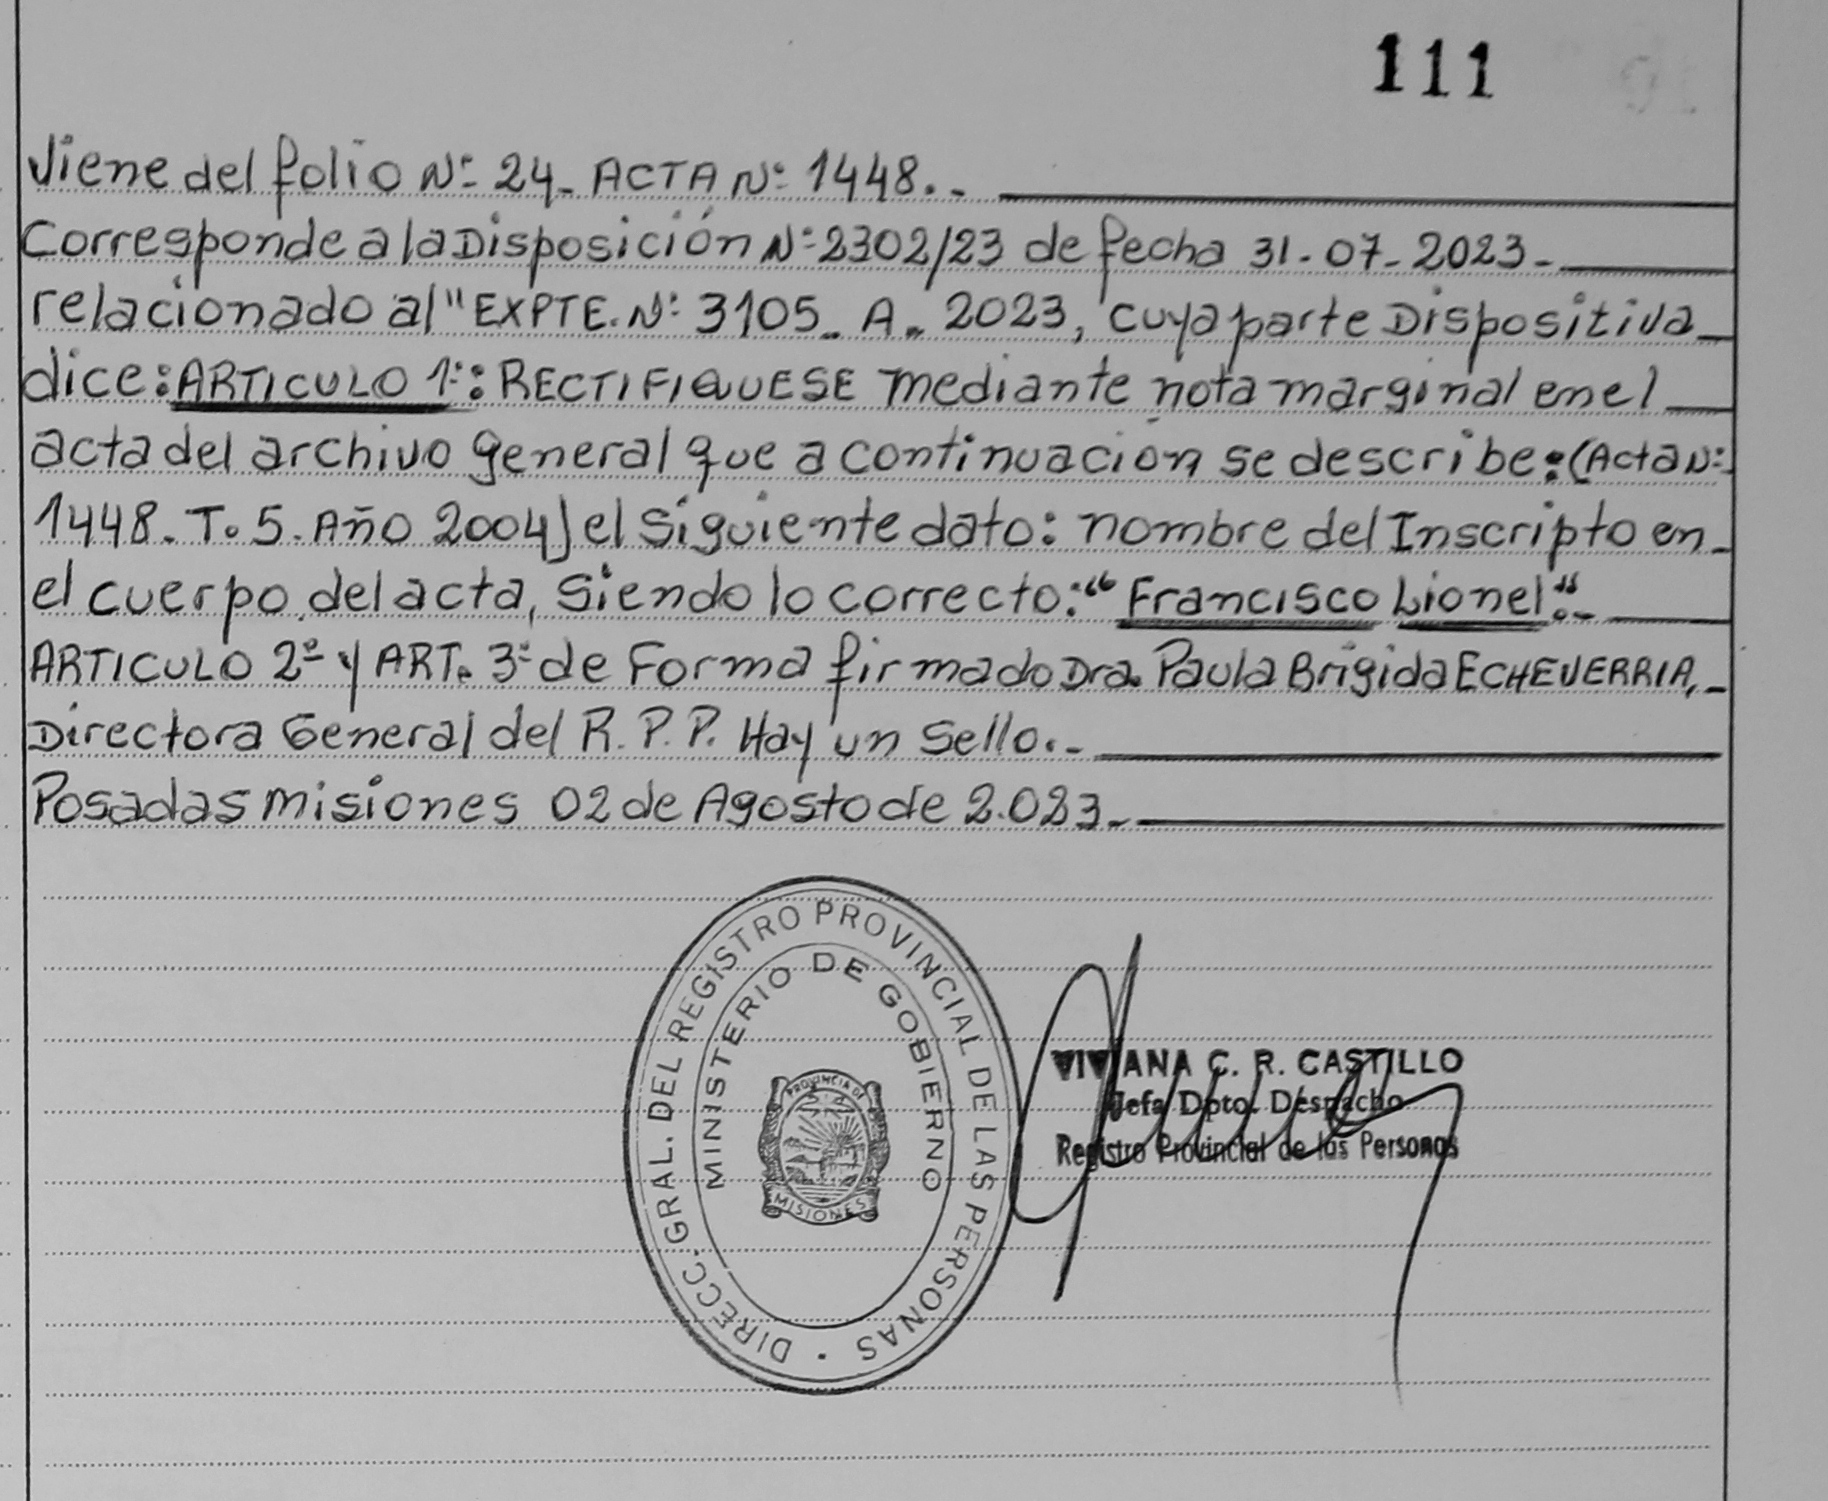 111
Viene del folio N° 24_ ACTA N° 1448._
Corresponde a la Disposición N° 2302/23 de fecha 31-07-2023_
relacionado al "EXPTE. N° 3105_ A_ 2023, cuya parte Dispositiva_
dice: ARTICULO 1°: RECTIFIQUESE mediante nota marginal en el_
acta del archivo General que a continuación se describe: (Acta N°
1448. T. 5. Año 2004) el siguiente dato: nombre del Inscripto en_
el cuerpo del acta, siendo lo correcto: "Francisco Lionel"._
ARTICULO 2° y ART. 3° de Forma firmado Dra. Paula Brigida ECHEVERRIA,_
Directora General del R.P.P. Hay un sello._
Posadas misiones 02 de Agosto de 2.023_
DIRECC. GRAL. DEL REGISTRO PROVINCIAL DE LAS PERSONAS
MINISTERIO DE GOBIERNO
PROVINCIA DE
MISIONES
VIVIANA C. R. CASTILLO
Jefa Dpto. Despacho
Registro Provincial de las Personas